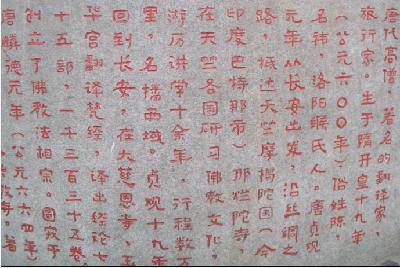 唐代高僧 著名的翻译家，
旅行家。生于隋开皇十九年
（公元六〇〇年）俗姓陈，
名祎，洛阳缑氏人。唐贞观
元年从长安出发，沿丝绸之
路，抵达天竺摩揭陀国（今
印度巴特那市）那烂陀寺，
在天竺各国研习佛教文化。
游历讲学十余年，行程数万
里，名播西域。贞观十九年
回到长安，在大慈恩寺、玉
华宫翻译梵经，译出经论七
十五部，一千三百三十五卷。
创立了佛教法相宗。圆寂于
唐麟德元年（公元六六四年）
寺。著